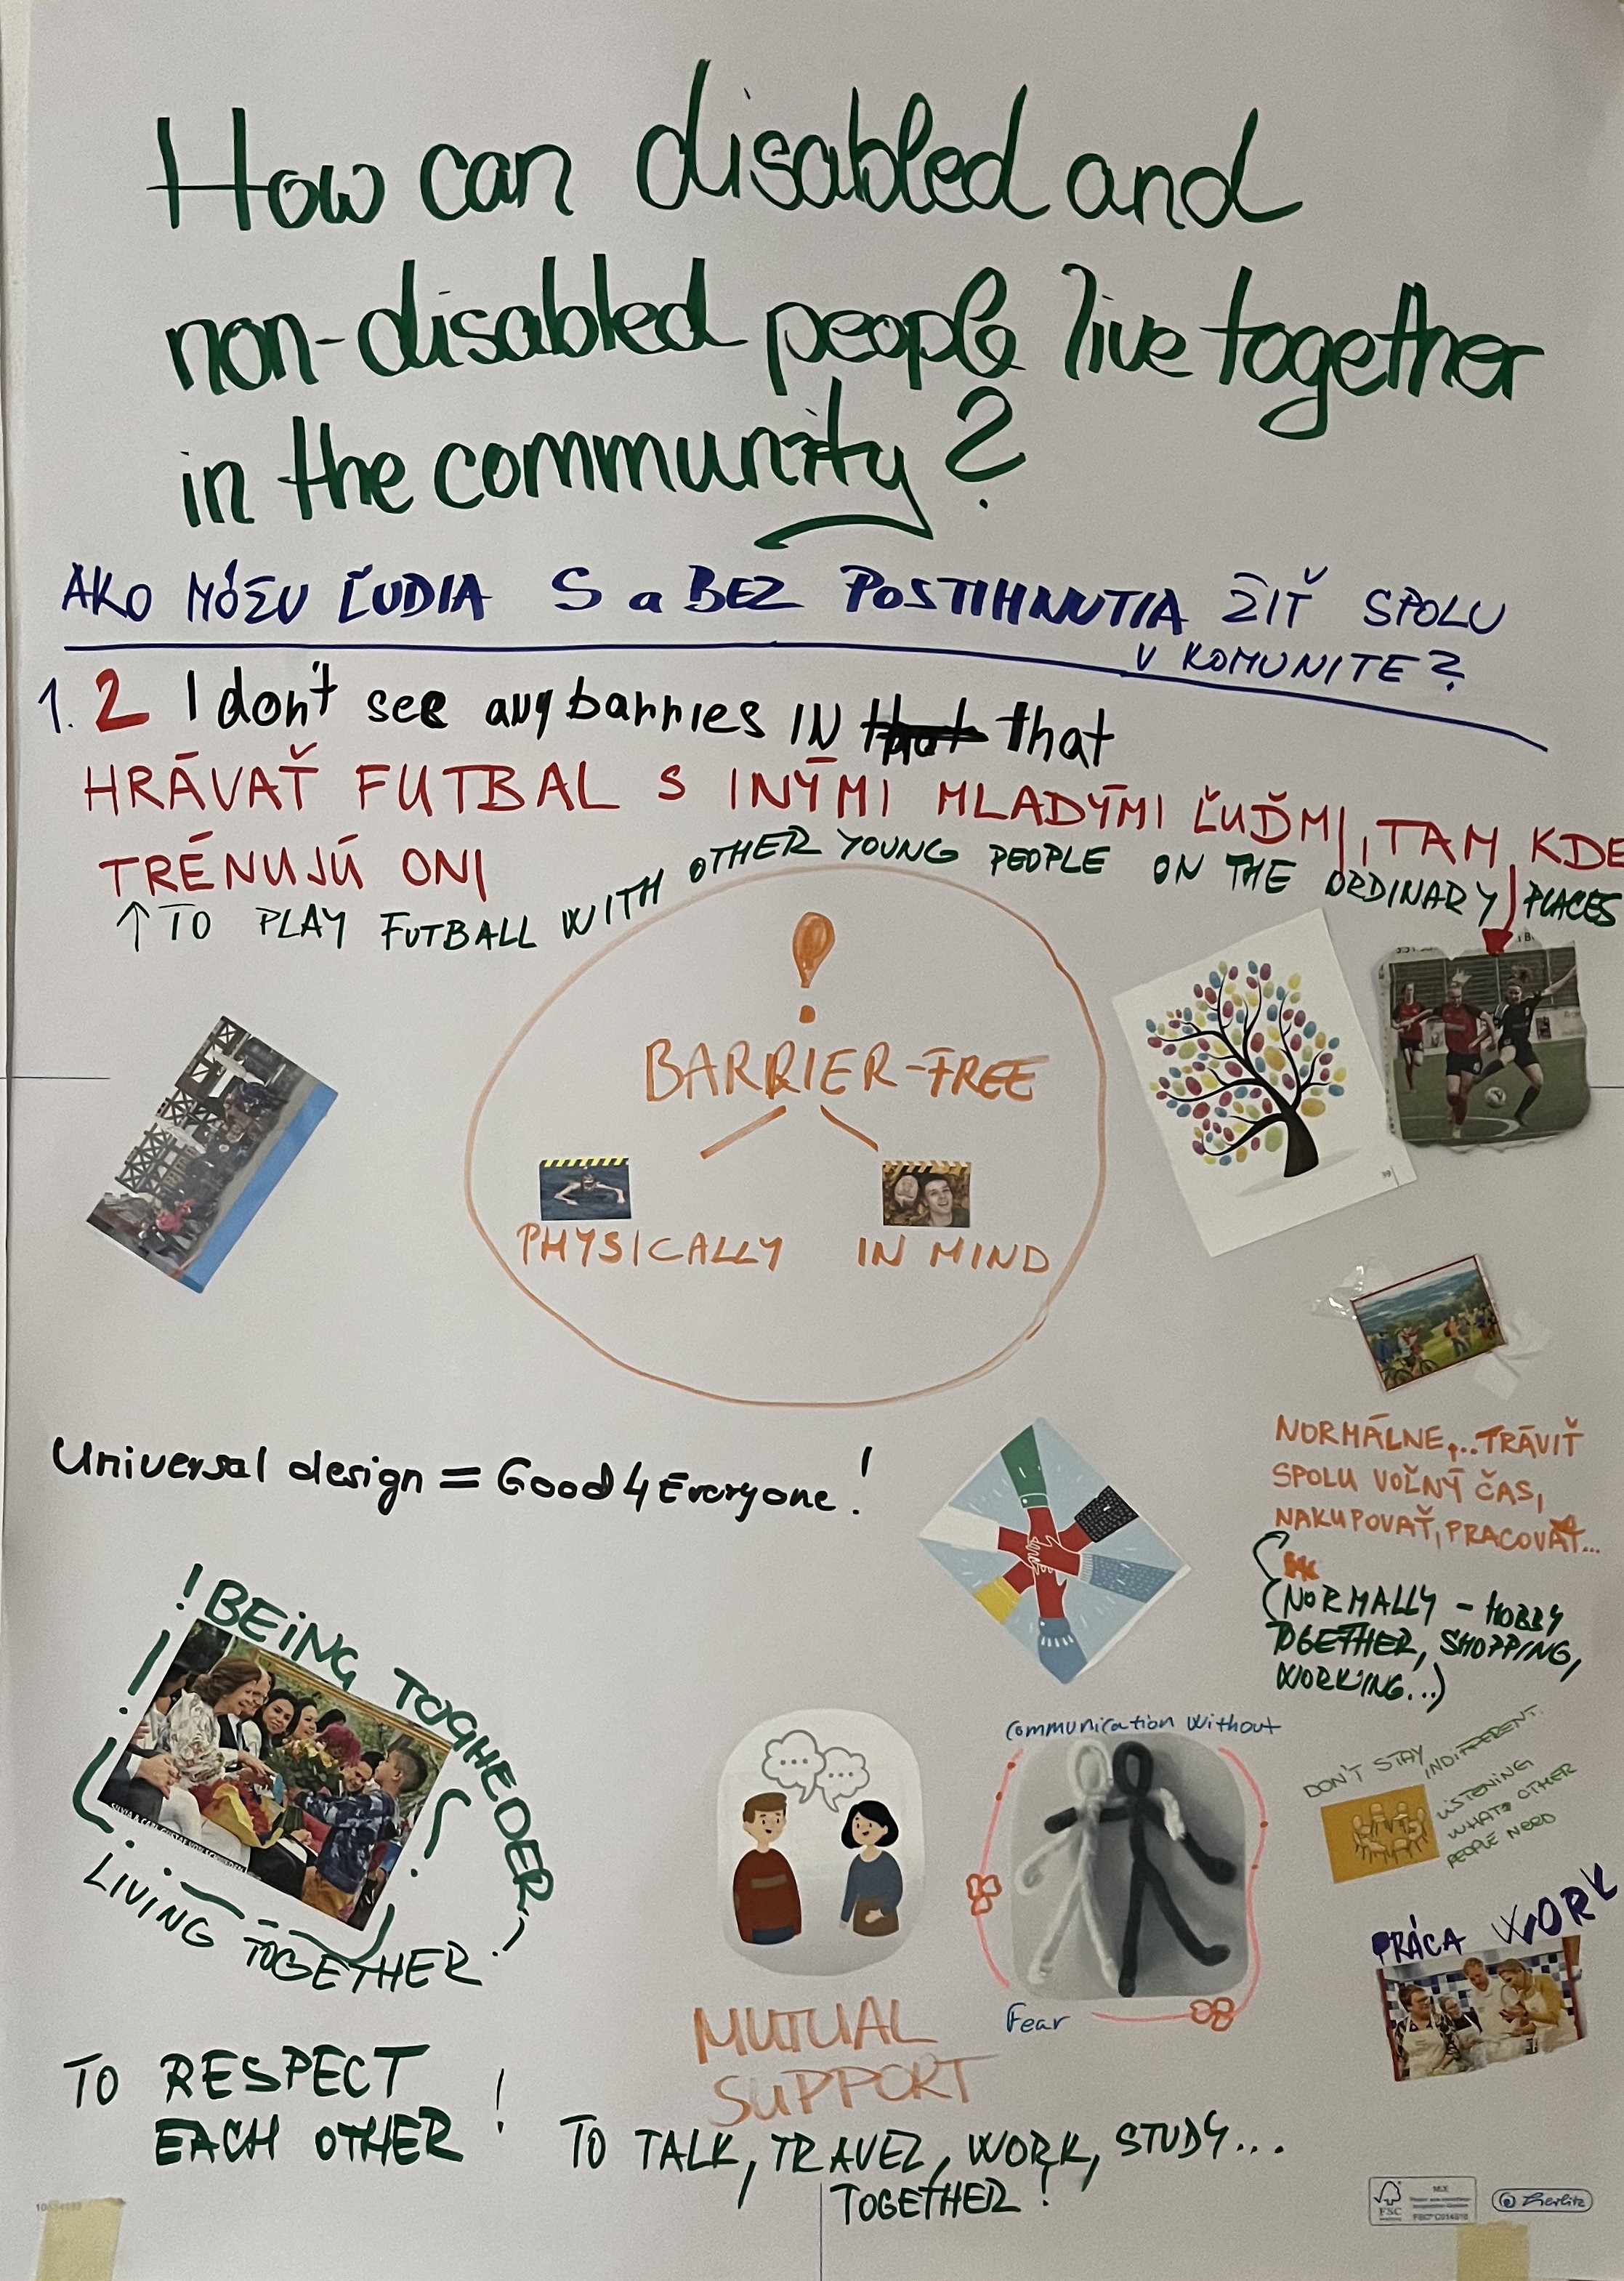 How can disabled and
non-disabled people live together
in the community?
AKO MÓŽU ĽUDIA S a BEZ POSTIHNUTIA ŽIŤ SPOLU
V KOMUNITE?
1. 2 I don't see any barries IN that
HRÁVAŤ FUTBAL S INÝMI MLADÝMI ĽUĎMI, TAM KDE
TRÉNUJÚ ONI
↑ TO PLAY FUTBALL WITH OTHER YOUNG PEOPLE ON THE ORDINARY PLACES
!
BARRIER-FREE
PHYSICALLY IN MIND
Universal design = Good 4 Everyone!
NORMÁLNE,...TRÁVIŤ
SPOLU VOĽNÝ ČAS,
NAKUPOVAŤ, PRACOVAŤ...
(NORMALLY - HOBBY
TOGETHER, SHOPPING,
WORKING...)
! BEING TOGHEDER
LIVING TOGETHER
communication without
Fear
DON'T STAY INDIFFERENT.
LISTENING
WHAT OTHER
PEOPLE NEED
PRÁCA WORK
MUTUAL
SUPPORT
TO RESPECT
EACH OTHER!
TO TALK, TRAVEL, WORK, STUDY...
TOGETHER!
FSC
MIX
Herlitz